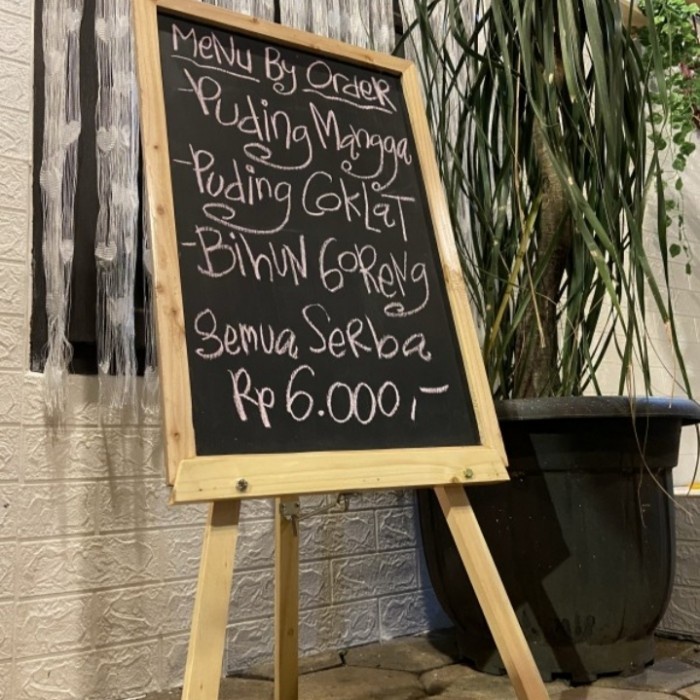 Menu By Order
- Puding Mangga
- Puding Coklat
- Bihun Goreng
Semua Serba
Rp 6.000,-